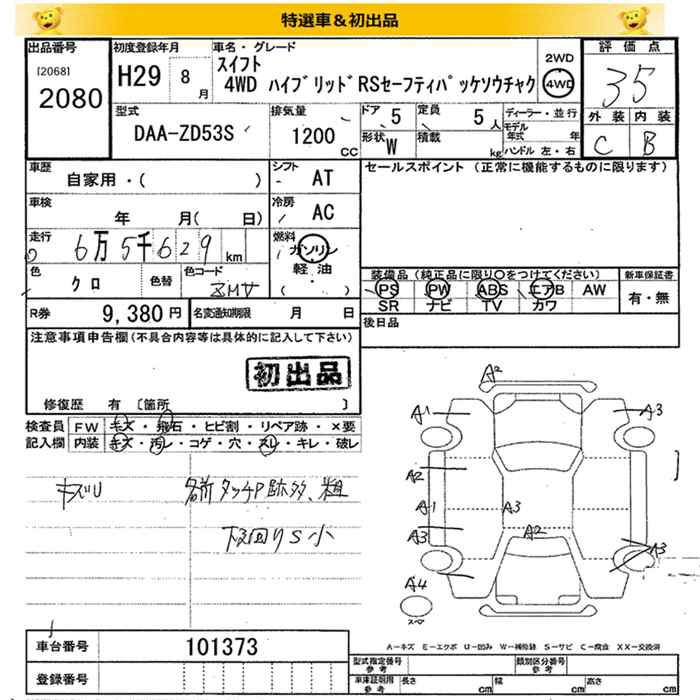 特選車＆初出品
出品番号 初度登録年月 車名・グレード 2WD 評価点
[2068] 2080 H29 8月 スイフト
4WD ハイブリッドRSセーフティパッケソウチャク 4WD 35
型式 排気量 ドア 定員 ディーラー・並行 外装 内装
DAA-ZD53S 1200 CC 5 5人 モデル年式 年 C B
形状 W 積載 kg ハンドル 左・右
車歴 シフト セールスポイント (正常に機能するものに限ります)
自家用・( ) AT
車検 冷房
年 月( 日) AC
走行 燃料
6万5千629km ガソリン
軽油・( )
色 色替 色コード 装備品 (純正品に限り○をつけてください) 新車保証書
クロ ZMV PS PW ABS エアB AW 有・無
SR ナビ TV カワ
R券 9,380円 名変通知期限 月 日 後日品
注意事項申告欄(不具合内容等は具体的に記入して下さい)
初出品
修復歴 有 [箇所 ]
検査員 FW キズ・飛石・ヒビ割・リペア跡・×要
記入欄 内装 キズ・汚レ・コゲ・穴・スレ・キレ・破レ
キズU 各所タッチP跡多、粗
下回りS小
A2
A1 A3
A2
A1 A3
A3 A2 A3
A4
スペア
車台番号 101373
A-キズ E-エクボ U-凹み W-補修跡 S-サビ C-腐食 XX-交換済
登録番号 型式指定番号 参考 類別区分番号 参考
車庫証明用 参考 長さ cm 幅 cm 高さ cm